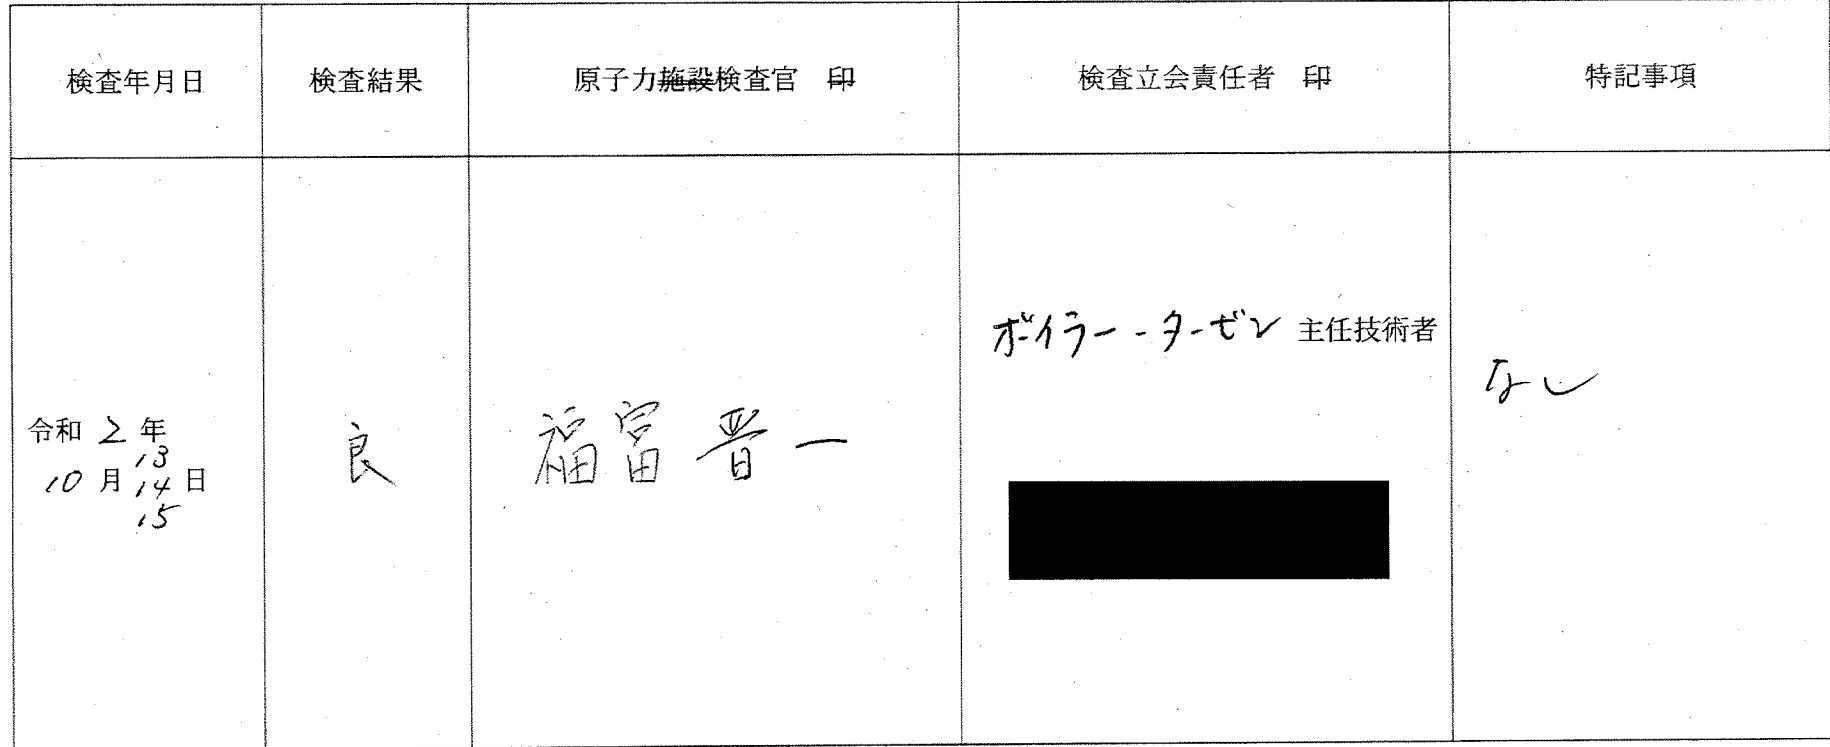 検査年月日
検査結果
原子力施設検査官 印
検査立会責任者 印
特記事項
令和 2 年
13
10 月 14 日
15
良
福富 晋一
ボイラー・タービン 主任技術者
なし